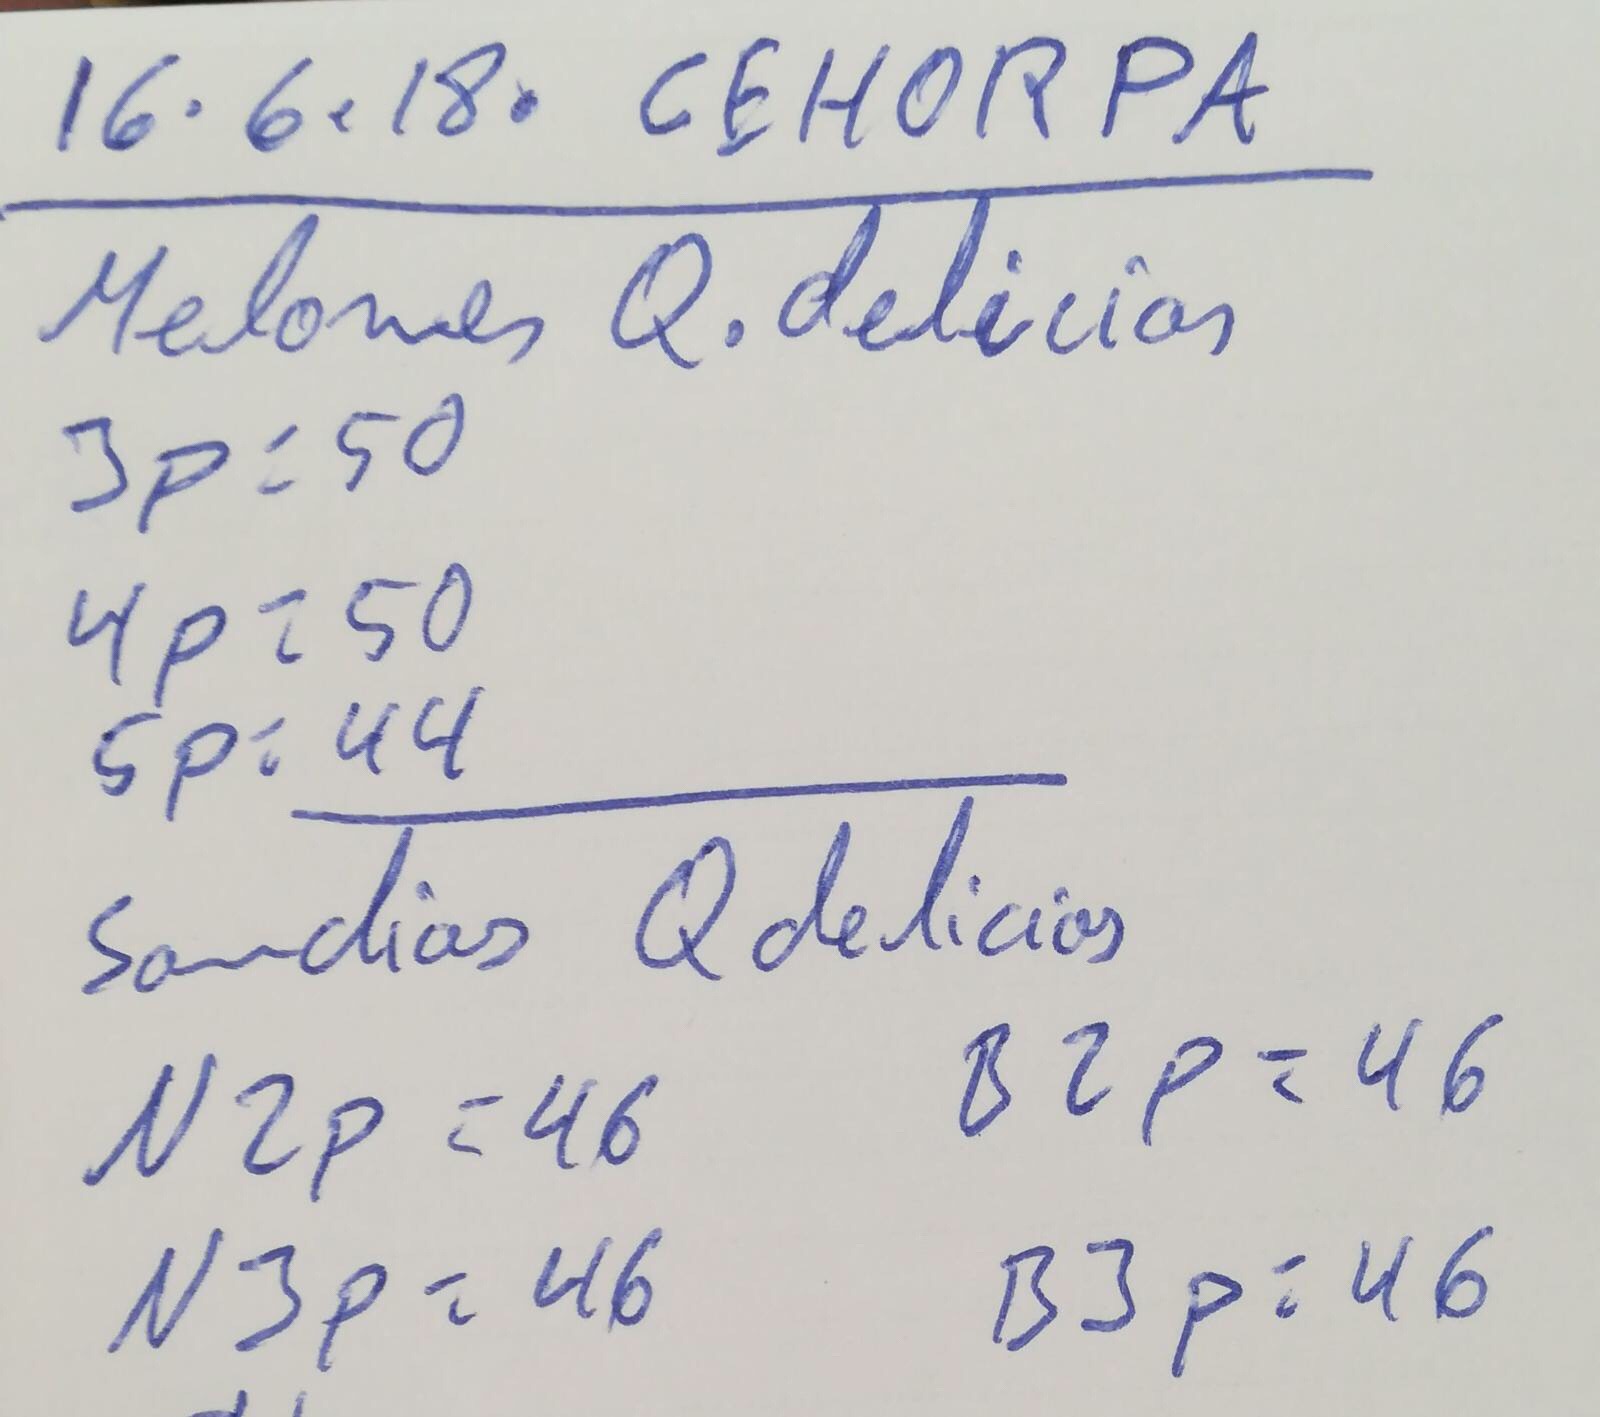 16.6.18. CEHORPA
Melones Q. delicias
3p=50
4p=50
5p=44
Sandias Q delicias
N2p=46 B2p=46
N3p=46 B3p=46